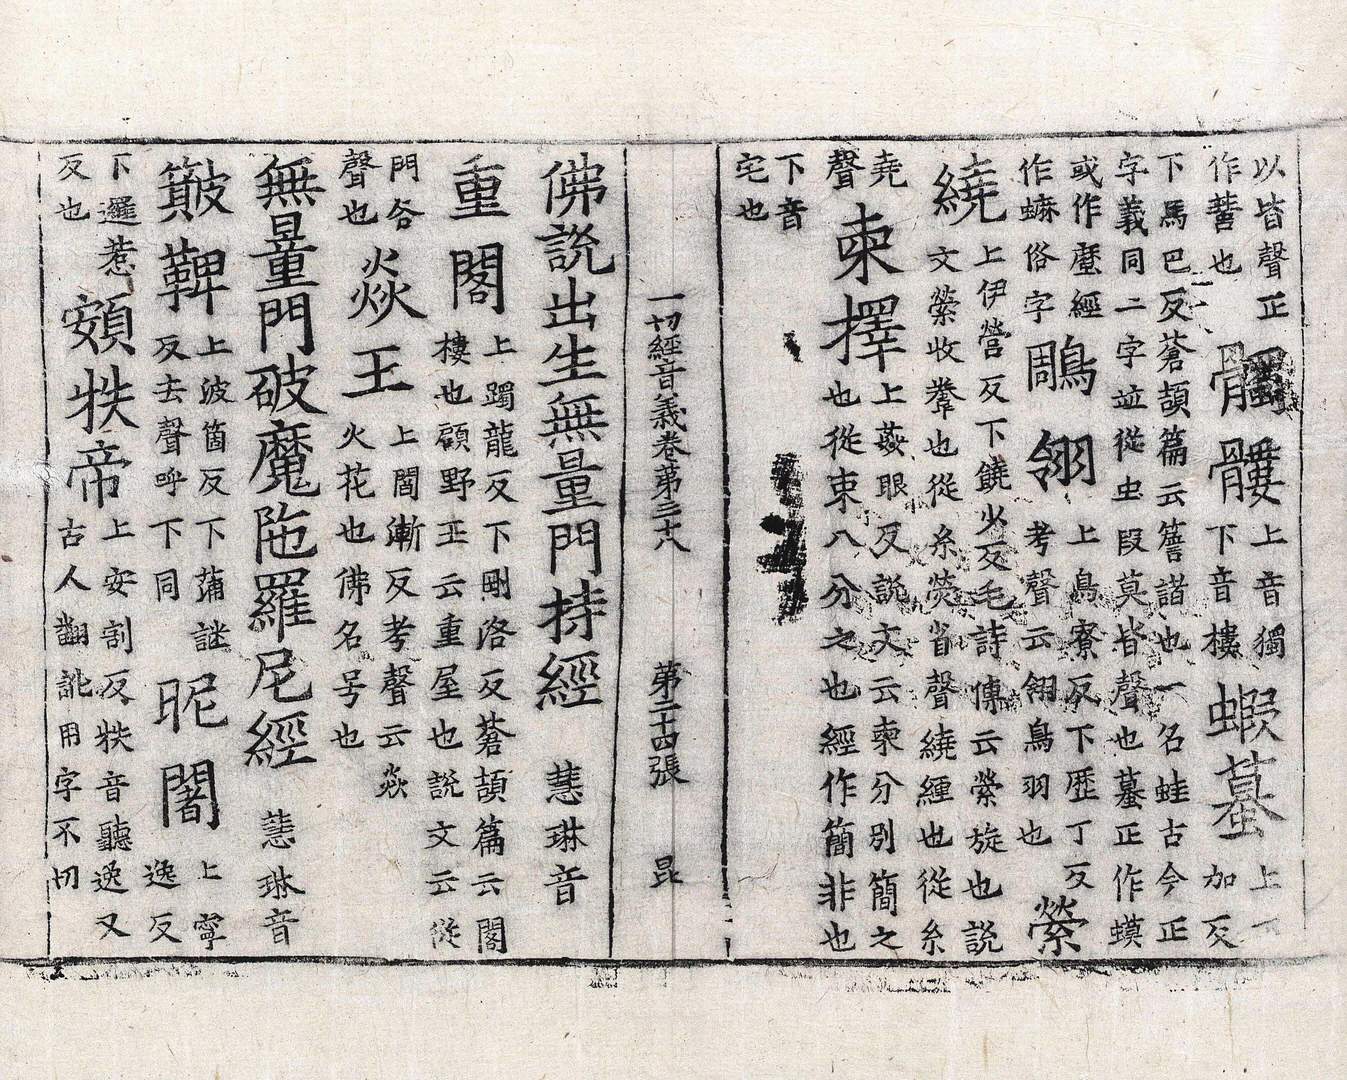 以皆聲正作蓸也髑髏上音獨下音樓蝦蟇上加反
下馬巴反蒼頡篇云諎也一名蛙古今正字義同二字並從虫叚莫皆聲也蟇正作蟆
或作䗫經作蔴俗字鵰翎上鳥寮反下歷丁反考聲云翎鳥羽也縈
繞上伊營反下饒少反毛詩傳云縈旋也說文縈收也從糸熒省聲繞纏也從糸
堯聲柬擇上姦眼反說文云柬分別簡之也從束八分之也經作簡非也
下音宅也
一切經音義卷第三十八 第二十四張 昆
佛說出生無量門持經 慧琳音
重閣上躅龍反下剛洛反蒼頡篇云閣樓也顧野王云重屋也說文云從
門各聲也焱王上閻漸反考聲云焱火花也佛名号也
無量門破魔陁羅尼經 慧琳音
簸鞞上波箇反下蒲謎反去聲呼下同昵闍上寧逸反
下邏惹反也頞秩帝上安割反秩音聽逸又古人翻訛用字不切